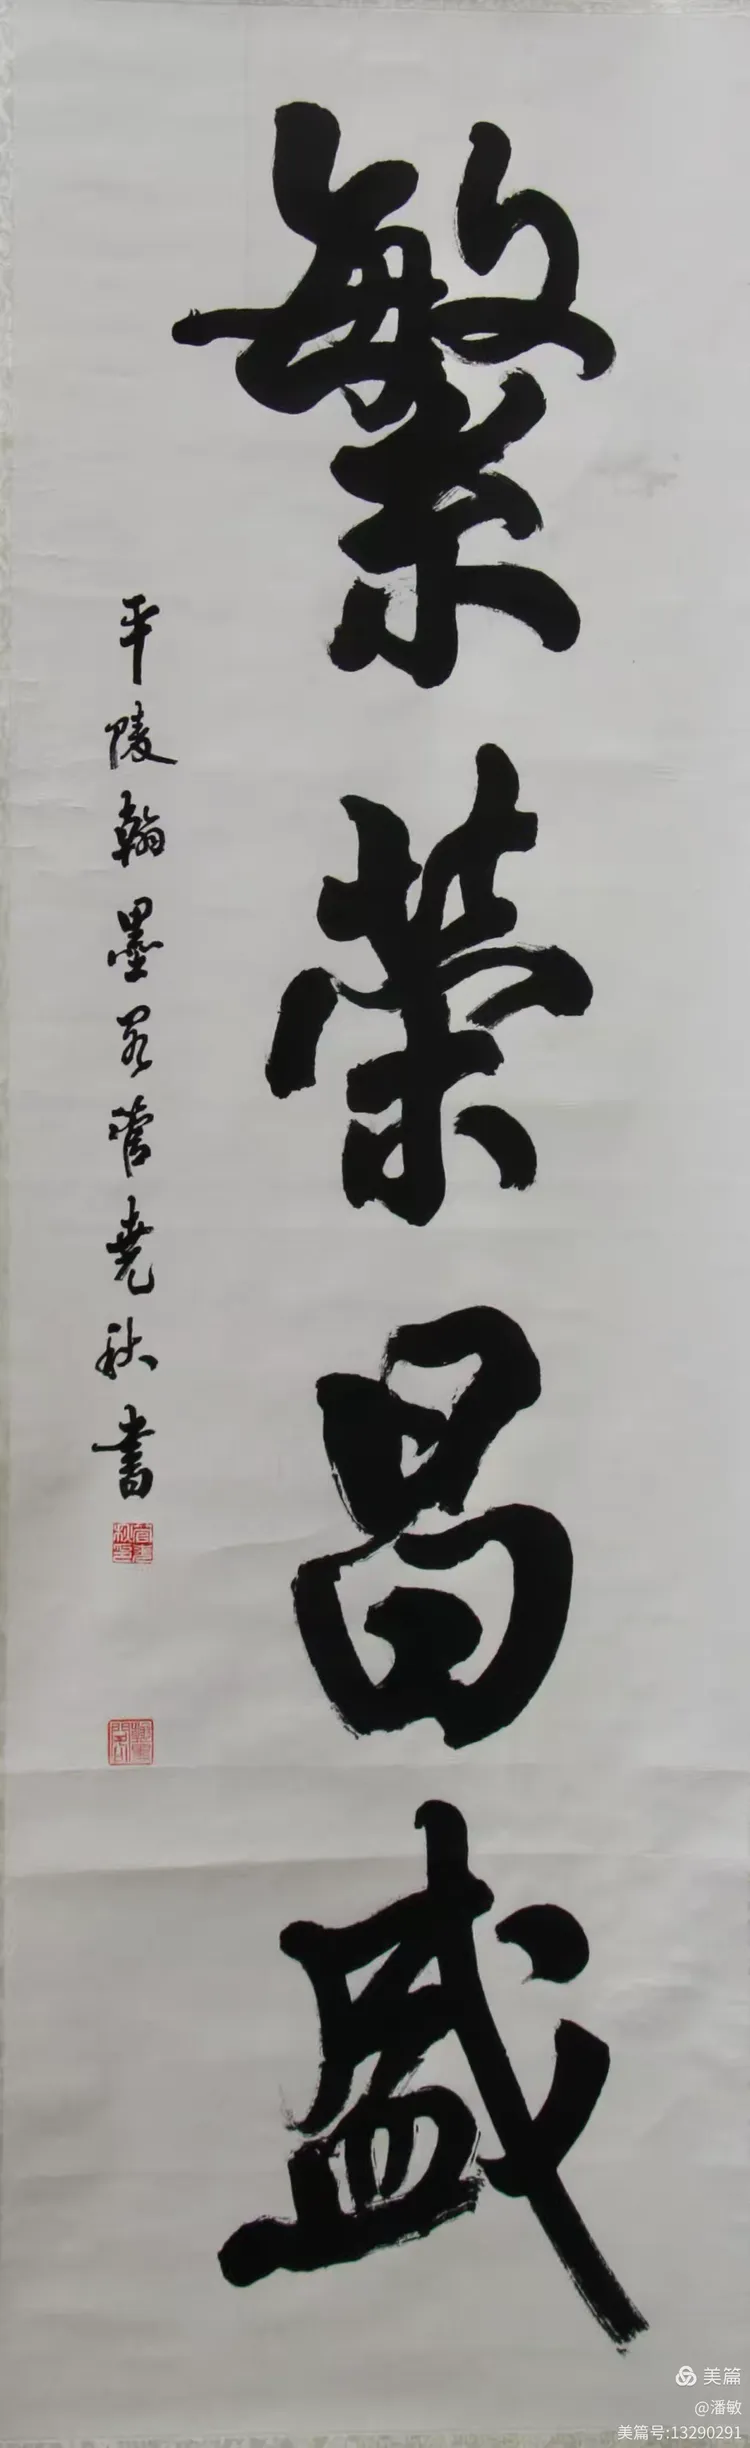 繁榮昌盛
平陵翰墨閣管堯秋書
美篇
@潘敏
美篇号:13290291